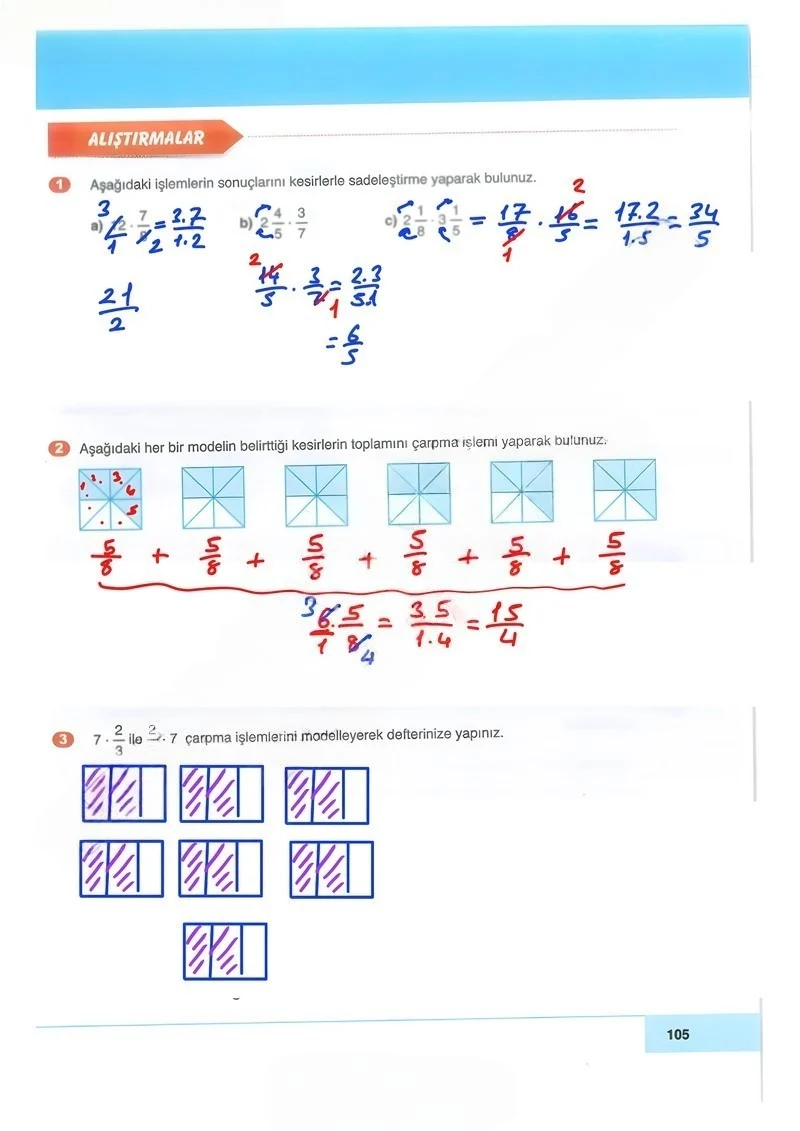 ALIŞTIRMALAR
1 Aşağıdaki işlemlerin sonuçlarını kesirlerle sadeleştirme yaparak bulunuz.
a) 12/1 · 7/8 = 3.7/1.2
3 2
21/2
b) 2 4/5 · 3/7
2 14/5 · 3/7 1 = 2.3/5.1
= 6/5
c) 2 1/8 · 3 1/5 = 17/8 · 16/5 = 17.2/1.5 = 34/5
2 1
2 Aşağıdaki her bir modelin belirttiği kesirlerin toplamını çarpma işlemi yaparak bulunuz.
1 2 3 4 5
5/8 + 5/8 + 5/8 + 5/8 + 5/8 + 5/8
3 6/1 · 5/8 4 = 3.5/1.4 = 15/4
3 7 · 2/3 ile · 7 çarpma işlemlerini modelleyerek defterinize yapınız.
105